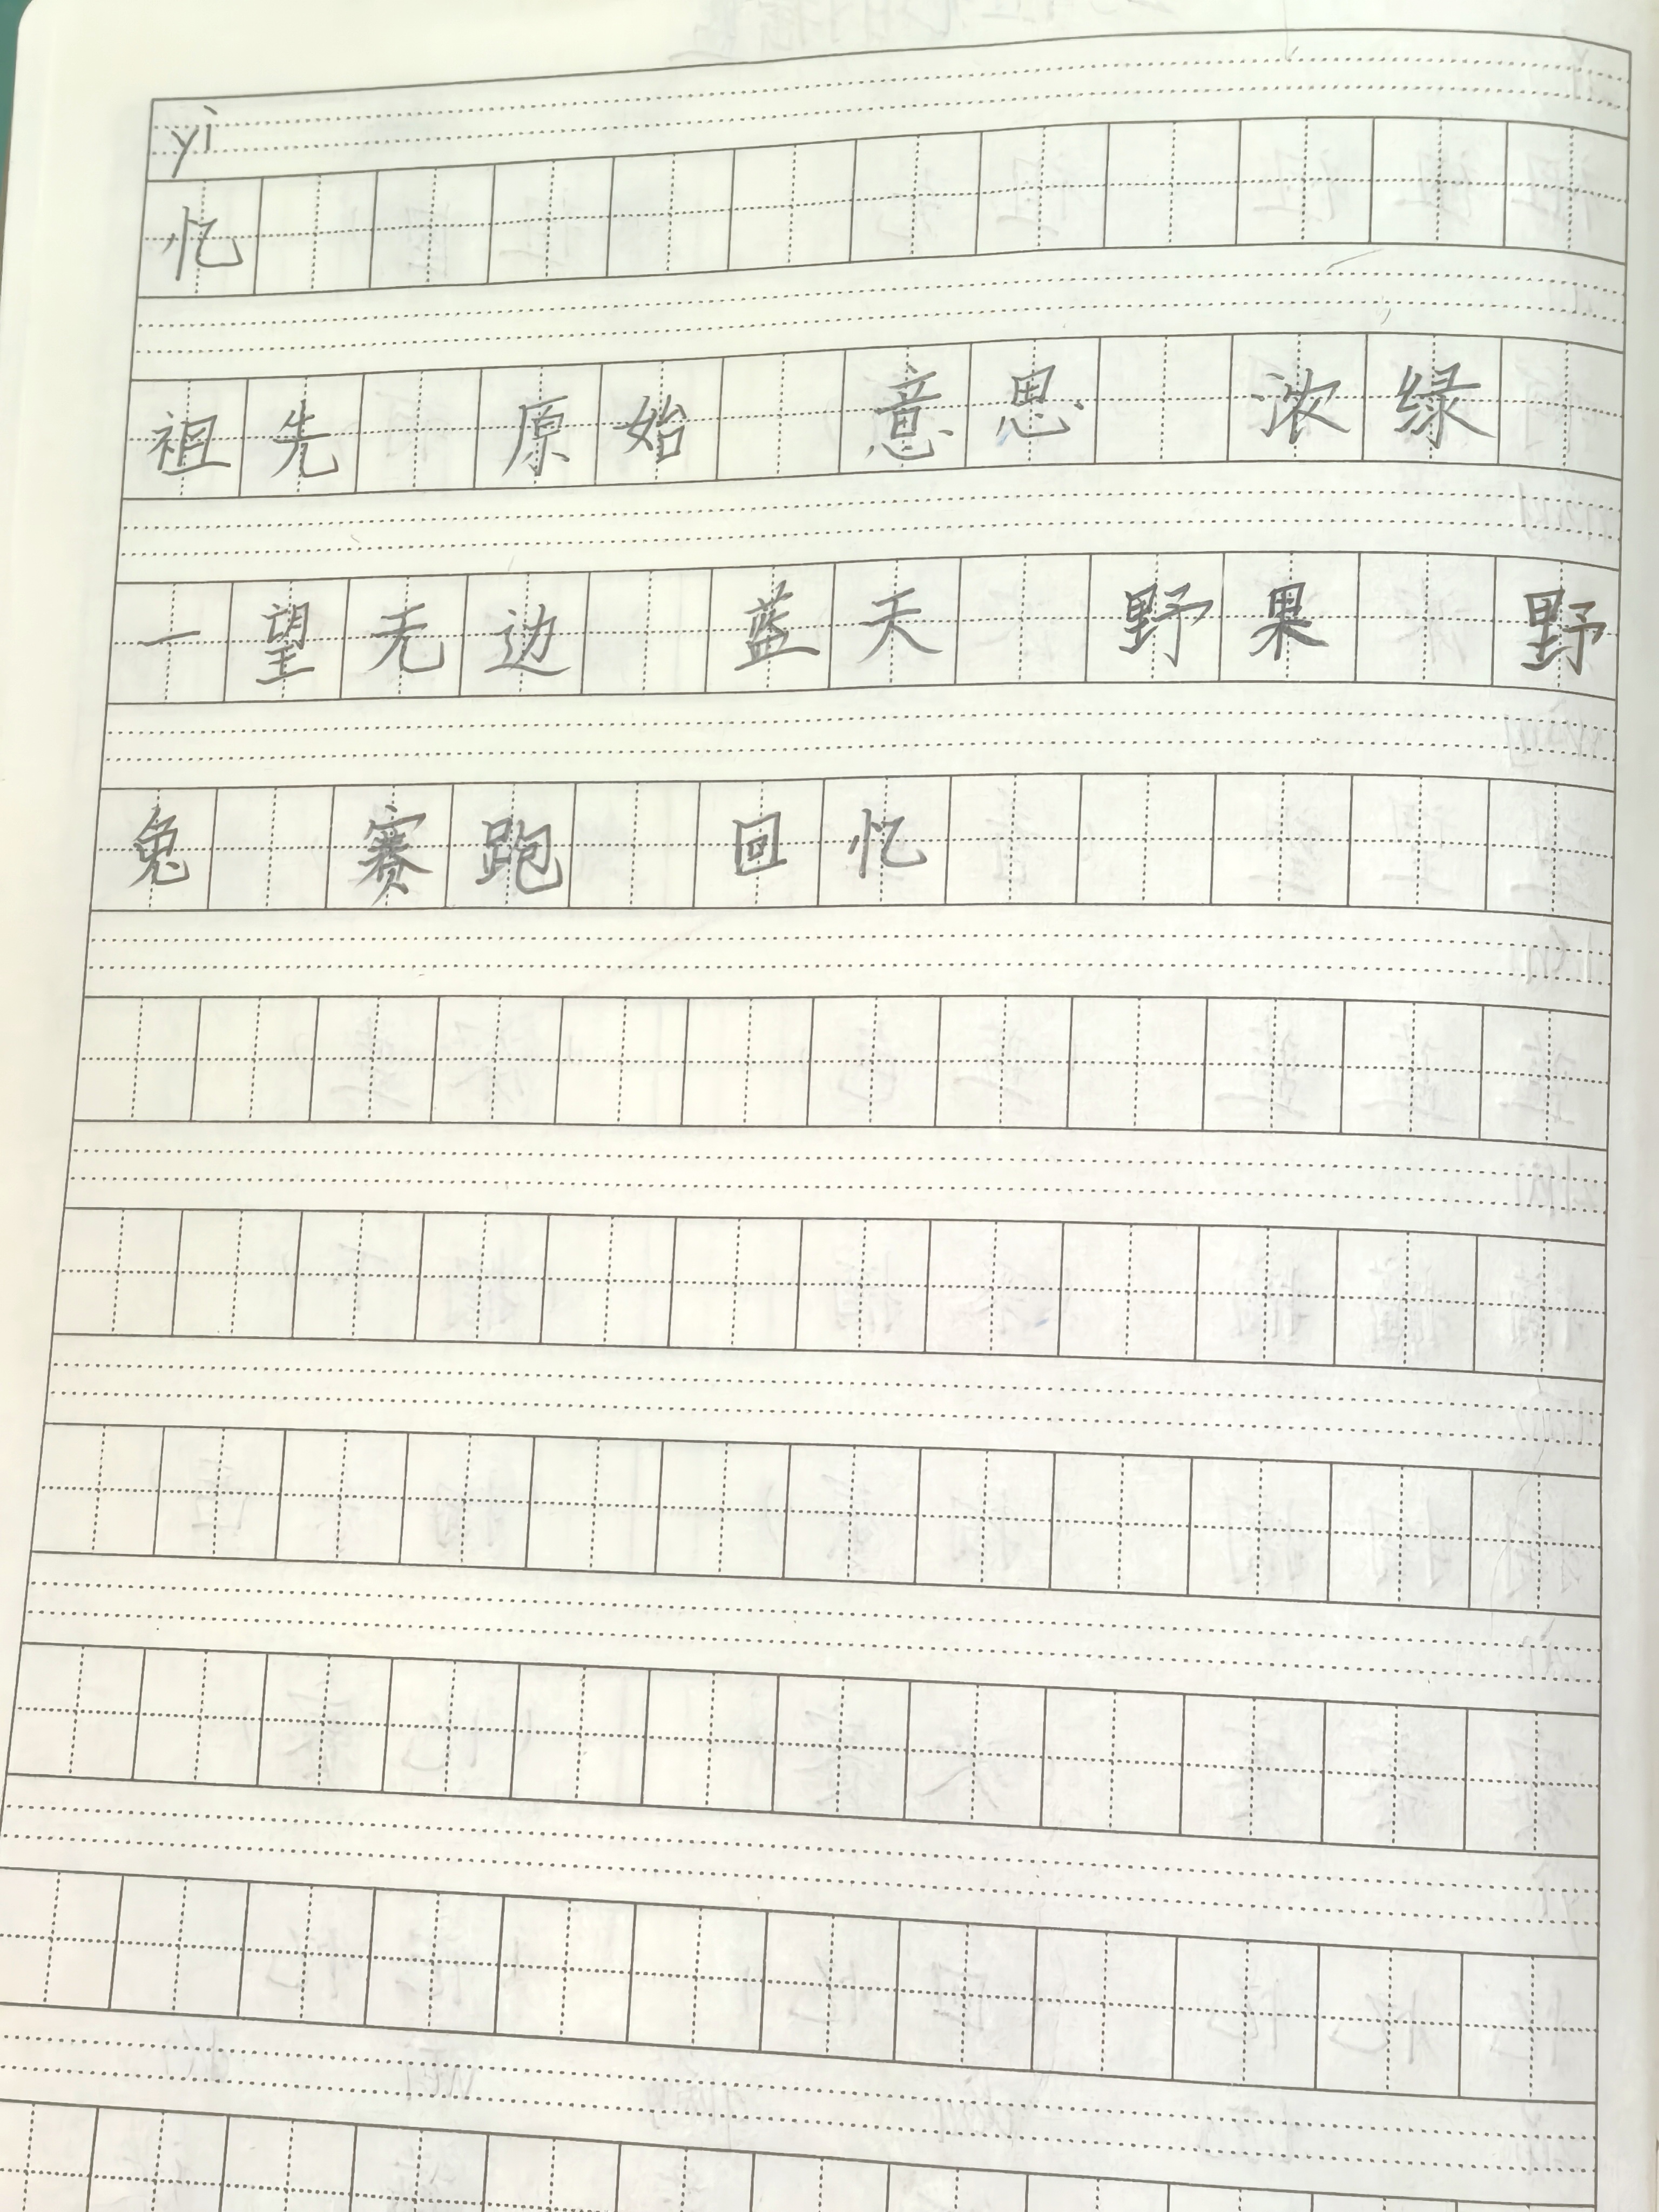 yi
忆
祖先 原始 意思 浓绿
一望无边 蓝天 野果 野
兔 赛跑 回忆